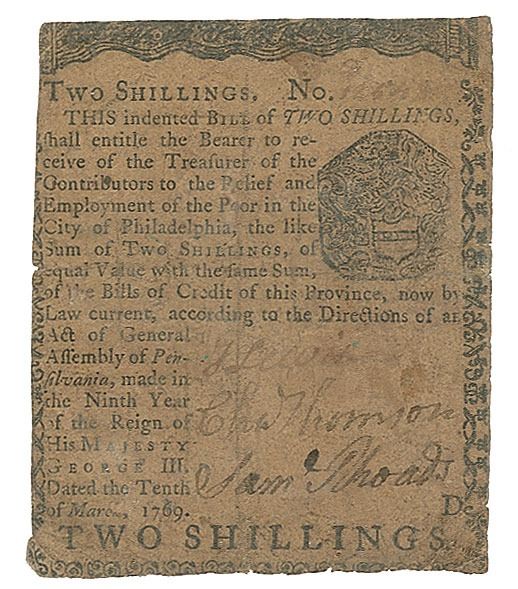 TWO SHILLINGS. No.
THIS indented BILL of TWO SHILLINGS,
shall entitle the Bearer to re-
ceive of the Treasurer of the
Contributors to the Relief and
Employment of the Poor in the
City of Philadelphia, the like
Sum of TWO SHILLINGS, of
equal Value with the same Sum,
of the Bills of Credit of this Province, now by
Law current, according to the Directions of an
Act of General
Assembly of Pen-
silvania, made in
the Ninth Year
of the Reign of
His MAJESTY
GEORGE III.
Dated the Tenth
of March, 1769.
Cha Thomson
Sam Rhoads
D
TWO SHILLINGS.